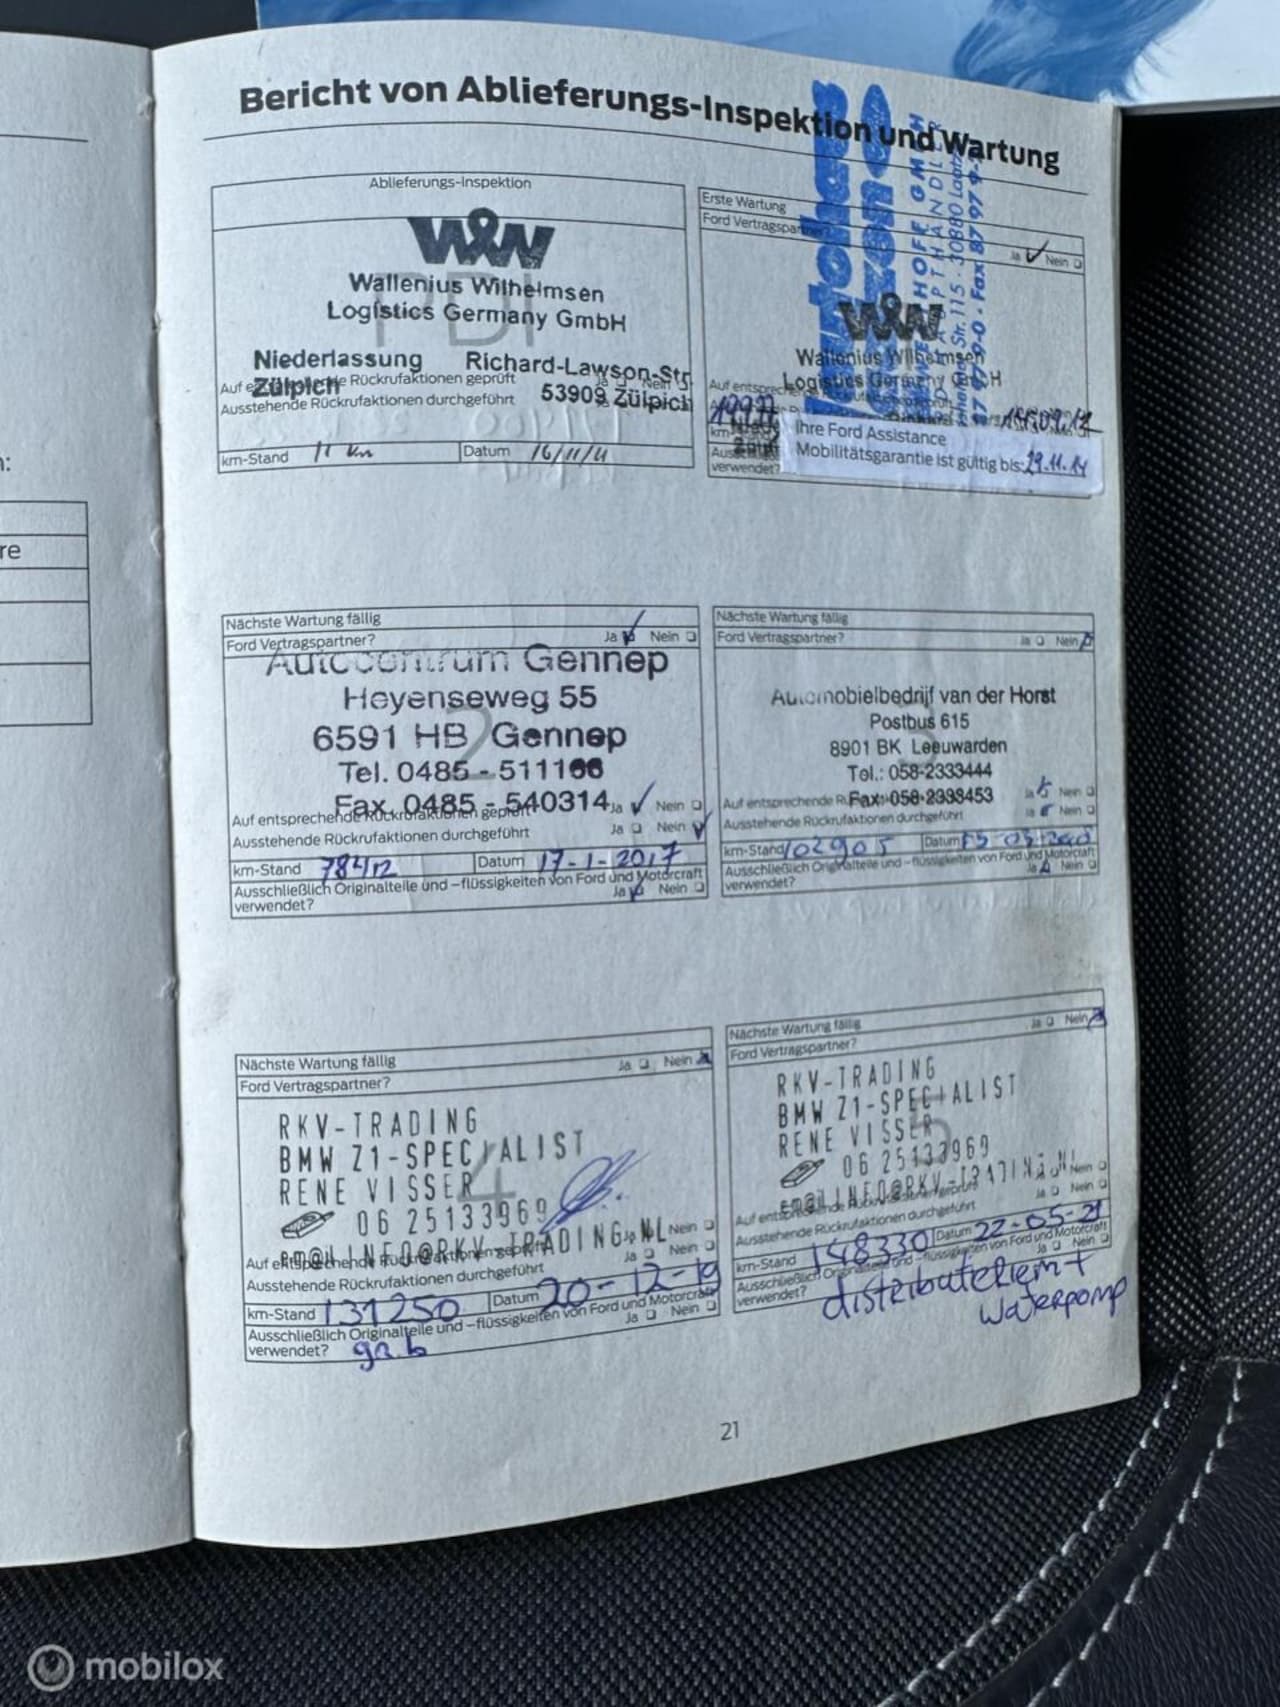 Bericht von Ablieferungs-Inspektion und Wartung
Ablieferungs-Inspektion
W&W
Wallenius Wilhelmsen
Logistics Germany GmbH
PDI
Niederlassung Richard-Lawson-Str
Zülpich
53909 Zülpich
Rückrufaktionen geprüft
Ausstehende Rückrufaktionen durchgeführt
km-Stand 11 km Datum 16/11/11
Erste Wartung
Ford Vertragspartner?
Ja Nein
W&W
Wallenius Wilhelmsen
Logistics Germany GmbH
Auf entsprechende
Ihre Ford Assistance
Mobilitätsgarantie ist gültig bis: 29.11.14
verwendet?
Nächste Wartung fällig
Ford Vertragspartner? Ja Nein
Autocentrum Gennep
Heyenseweg 55
6591 HB Gennep
2
Tel. 0485 - 511166
Fax. 0485 - 540314
Auf entsprechende Rückrufaktionen geprüft Ja Nein
Ausstehende Rückrufaktionen durchgeführt Ja Nein
km-Stand Datum 17-1-2017
Ausschließlich Originalteile und –flüssigkeiten von Ford und Motorcraft
verwendet? Ja Nein
Nächste Wartung fällig
Ford Vertragspartner? Ja Nein
Automobielbedrijf van der Horst
Postbus 615
8901 BK Leeuwarden
3
Tel.: 058-2333444
Fax: 058-2333453
Auf entsprechende Ja Nein
Ausstehende Rückrufaktionen durchgeführt Ja Nein
km-Stand 102905 Datum
Ausschließlich Originalteile und –flüssigkeiten von Ford und Motorcraft
verwendet? Ja Nein
Nächste Wartung fällig Ja Nein
Ford Vertragspartner?
RKV-TRADING
BMW Z1-SPECIALIST
RENE VISSER
4
06 25133969
em@il INFO@RKV-TRADING.NL
Auf entsprechende Rückrufaktionen geprüft Ja Nein
Ausstehende Rückrufaktionen durchgeführt Ja Nein
km-Stand 131250 Datum 20-12-19
Ausschließlich Originalteile und –flüssigkeiten von Ford und Motorcraft
verwendet? Ja Nein
Nächste Wartung fällig Ja Nein
Ford Vertragspartner?
RKV-TRADING
BMW Z1-SPECIALIST
RENE VISSER
5
06 25133969
em@il INFO@RKV-TRADING.NL
Auf entsprechende Rückrufaktionen geprüft Nein
Ausstehende Rückrufaktionen durchgeführt Ja Nein
km-Stand 148330 Datum 22-05-21
Ausschließlich Originalteile und –flüssigkeiten von Ford und Motorcraft
verwendet? Ja Nein
distributieriem +
waterpomp
21
re
mobilox